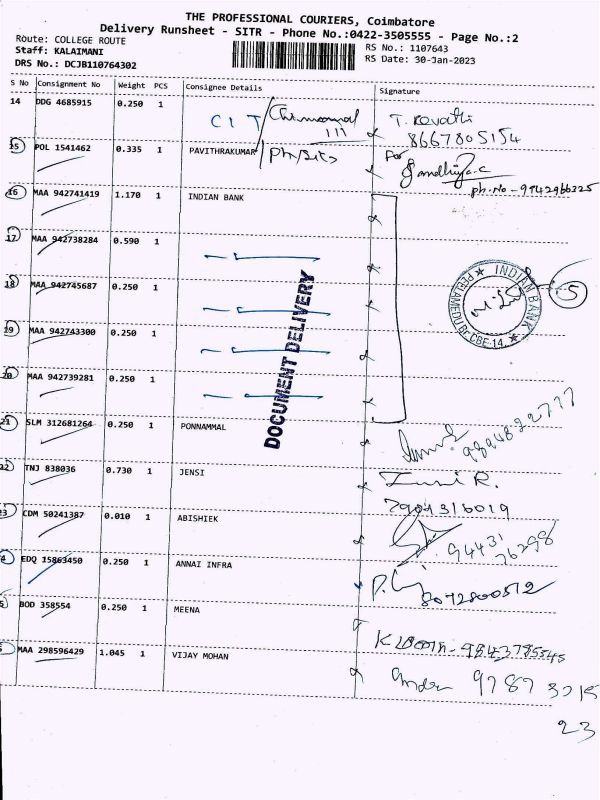 THE PROFESSIONAL COURIERS, Coimbatore
Delivery Runsheet - SITR - Phone No.:0422-3505555 - Page No.:2
Route: COLLEGE ROUTE
Staff: KALAIMANI
DRS No.: DCJB110764302
RS No.: 1107643
RS Date: 30-Jan-2023
S No Consignment No Weight PCS Consignee Details Signature
14 DDG 4685915 0.250 1 CIT
T. Revathi
8667805154
15 POL 1541462 0.335 1 PAVITHRAKUMAR
For
ph.No - 9942966325
16 MAA 942741419 1.170 1 INDIAN BANK
17 MAA 942738284 0.590 1
18 MAA 942745687 0.250 1
19 MAA 942743300 0.250 1
20 MAA 942739281 0.250 1
DOCUMENT DELIVERY
INDIAN BANK
CBE-14
5
21 SLM 312681264 0.250 1 PONNAMMAL
9894822777
22 TNJ 838036 0.730 1 JENSI
Jensi R.
7904316019
23 CDM 50241387 0.010 1 ABISHIEK
94431
76298
4 EDQ 15863450 0.250 1 ANNAI INFRA
8072800512
5 BOD 358554 0.250 1 MEENA
9843785545
MAA 298596429 1.045 1 VIJAY MOHAN
97873215
23